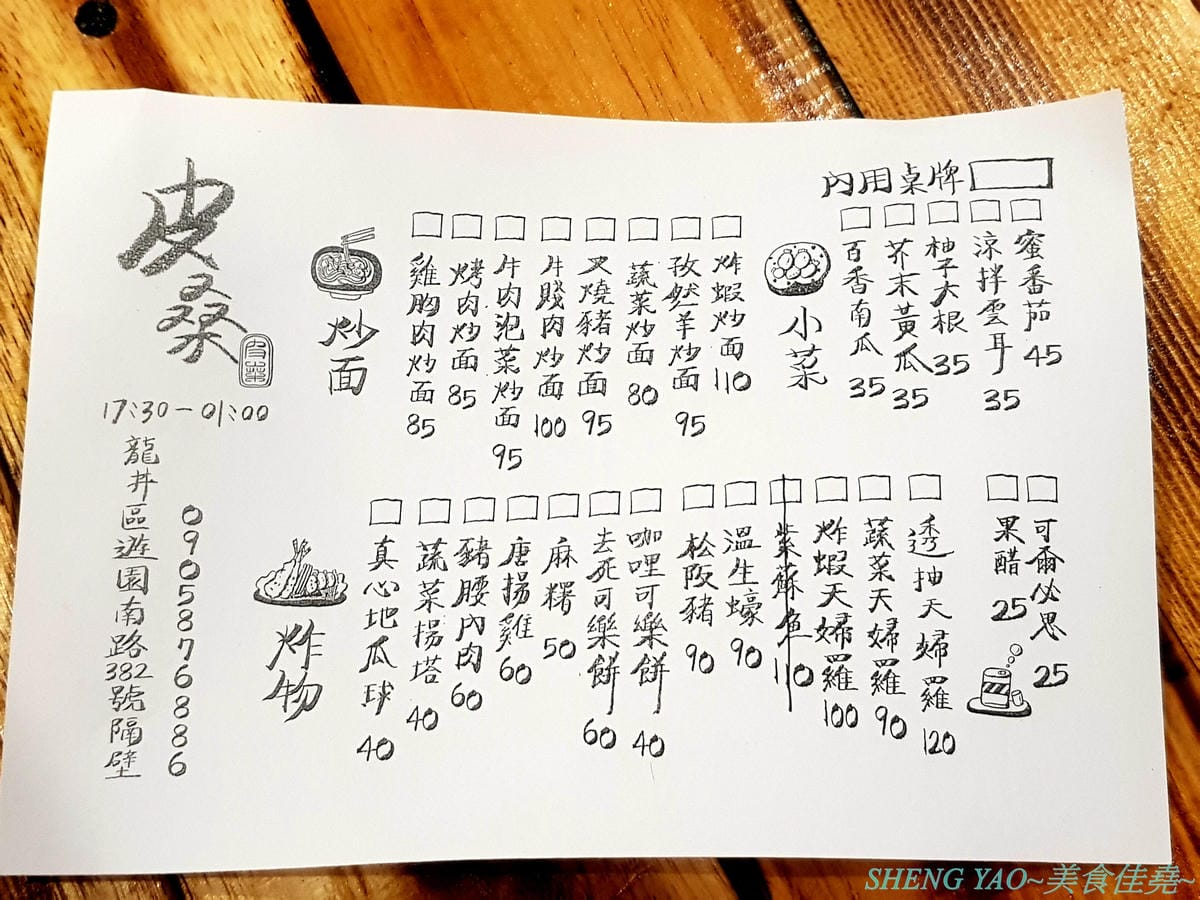 內用桌牌
蜜番茄 45
涼拌雲耳 35
柚子大根 35
芥末黃瓜 35
百香南瓜 35
小菜
炸蝦炒面 110
孜然羊炒面 95
蔬菜炒面 80
叉燒豬炒面 95
牛賤肉炒面 100
牛肉泡菜炒面 95
烤肉炒面 85
雞胸肉炒面 85
炒面
可爾必思 25
果醋 25
透抽天婦羅 120
蔬菜天婦羅 90
炸蝦天婦羅 100
紫蘇魚 110
溫生蠔 90
松阪豬 90
咖哩可樂餅 40
去死可樂餅 60
麻糬 50
唐揚雞 60
豬腰內肉 60
蔬菜揚塔 40
真心地瓜球 40
炸物
皮
17:30-01:00
0905876886
龍井區遊園南路382號隔壁
SHENG YAO~美食佳堯~